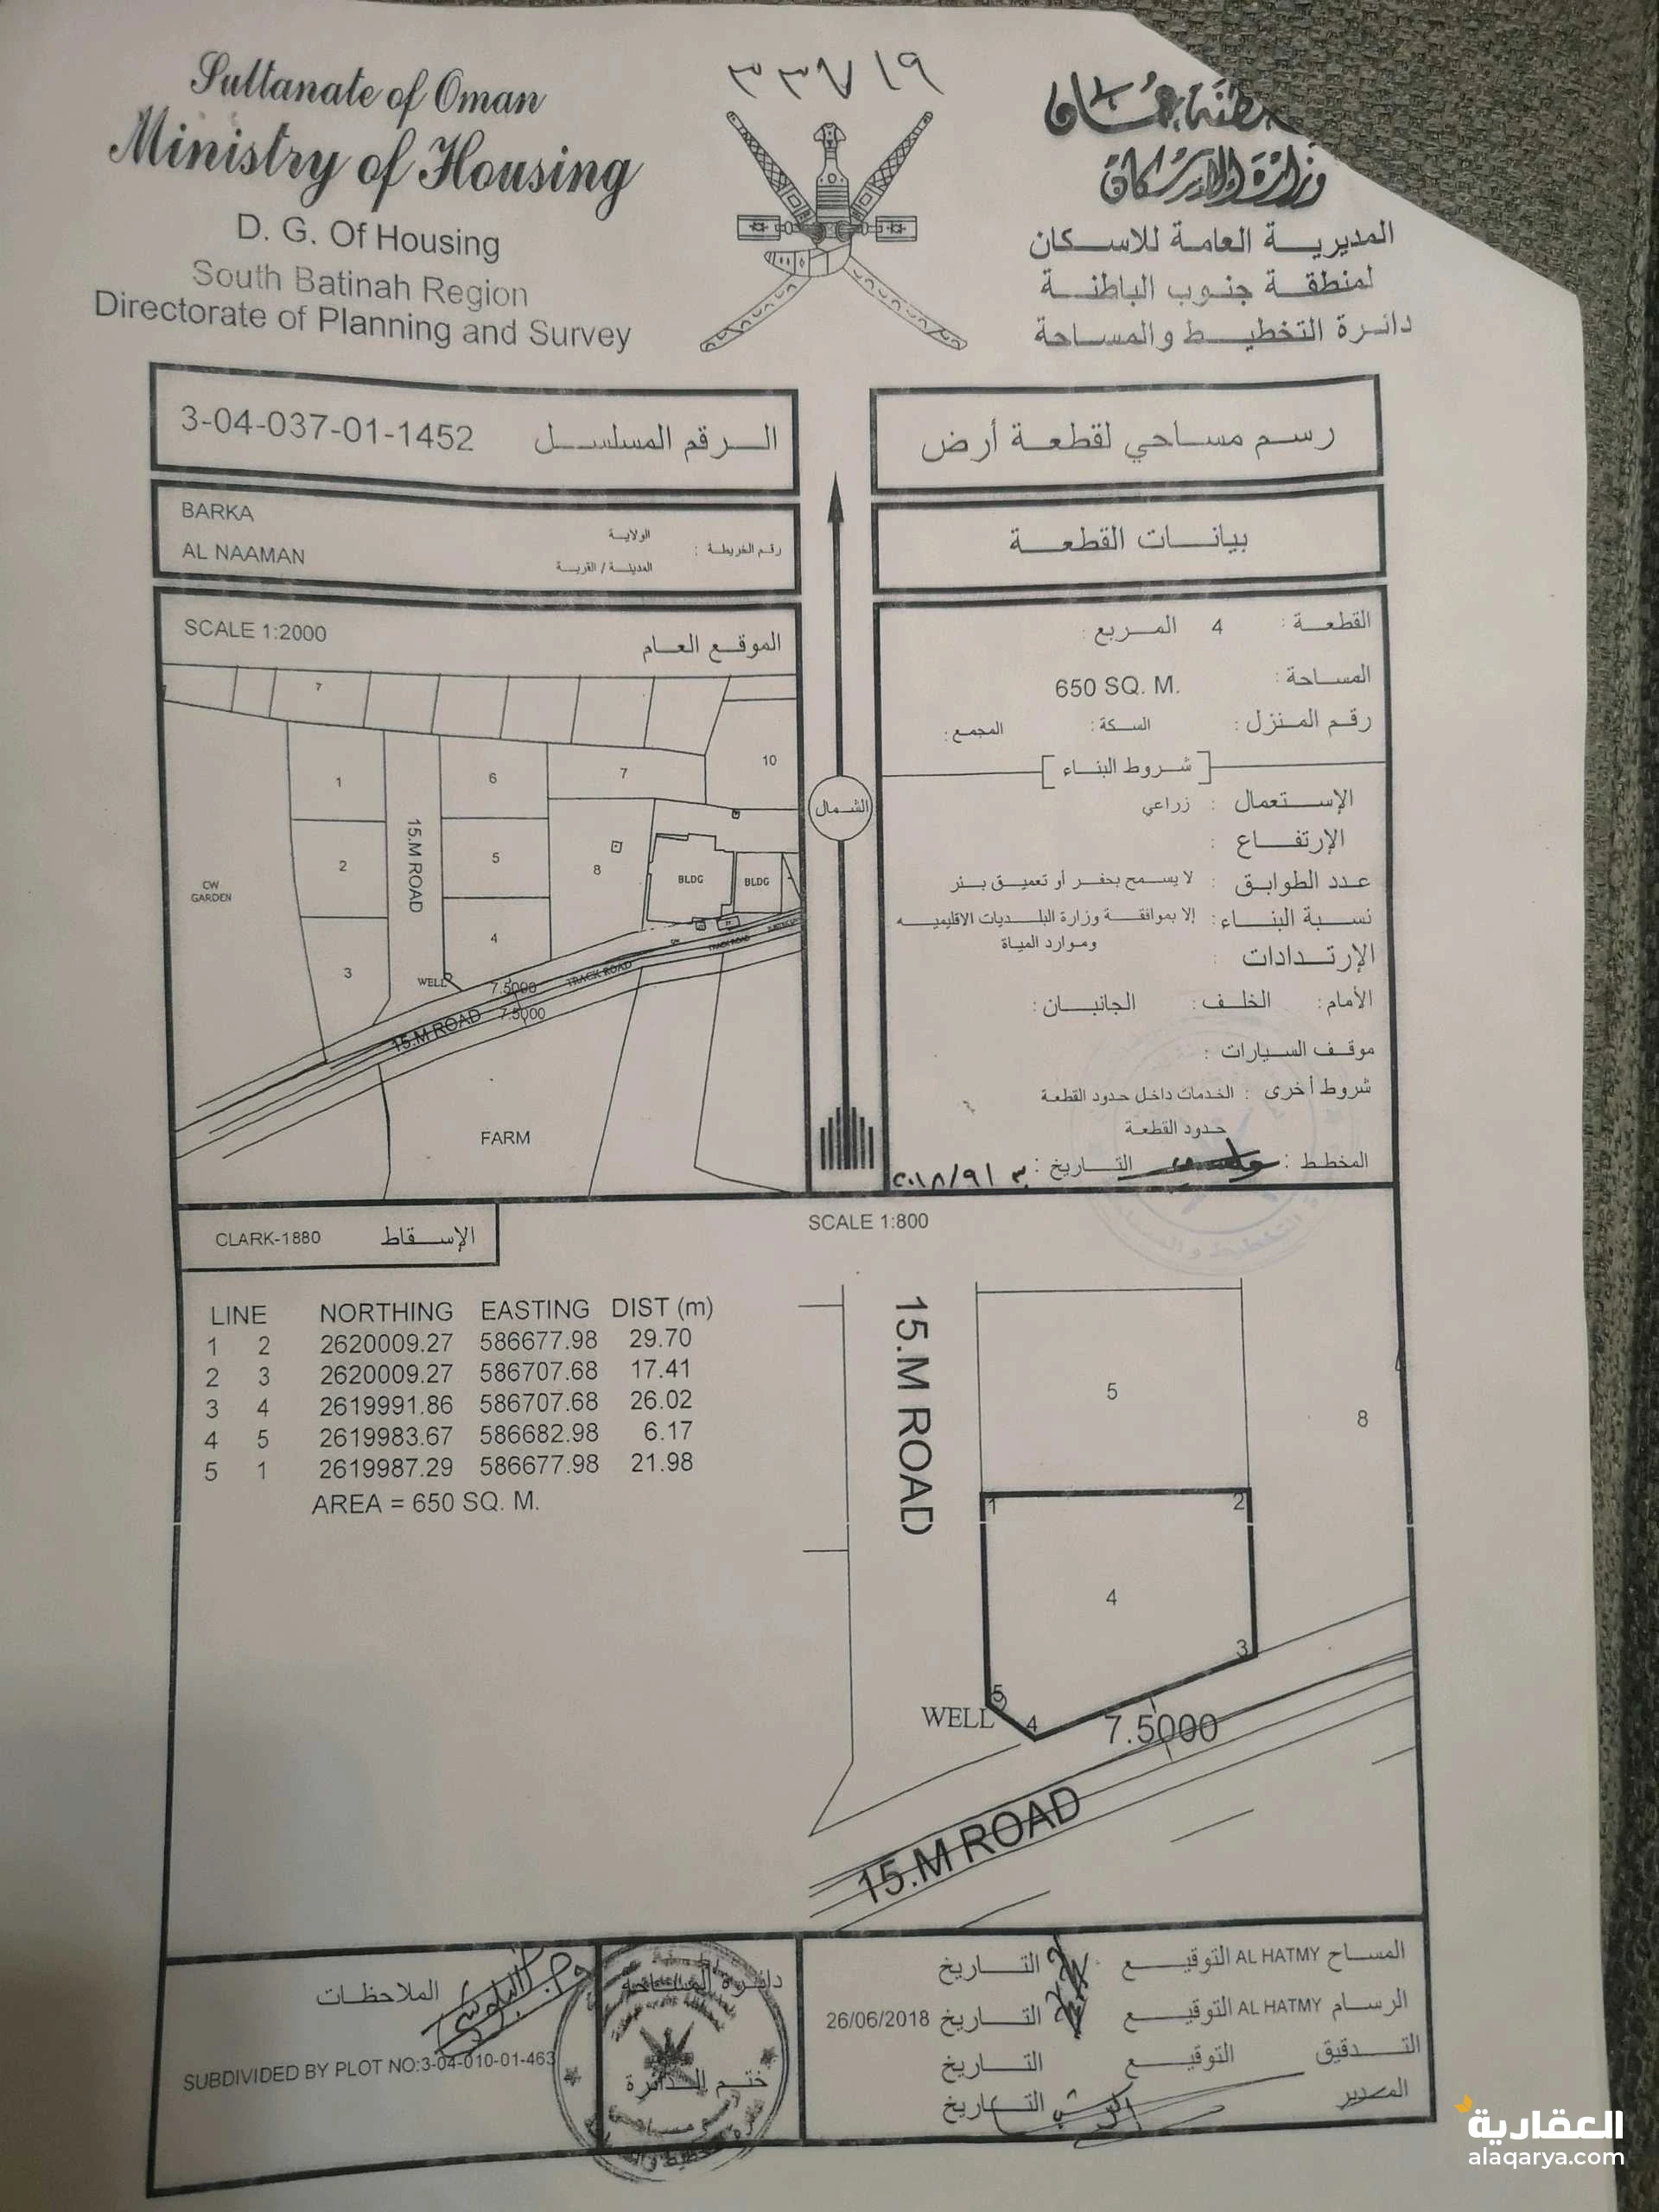 ٣٣٧١٩
Sultanate of Oman
Ministry of Housing
D. G. Of Housing
South Batinah Region
Directorate of Planning and Survey
وزارة الإسكان
المديرية العامة للاسكان
لمنطقة جنوب الباطنة
دائرة التخطيط والمساحة
3-04-037-01-1452 الرقم المسلسل
رسم مساحي لقطعة أرض
BARKA
AL NAAMAN
الولاية
رقم الخريطة :
المدينة / القرية
بيانات القطعة
SCALE 1:2000
الموقع العام
7
1
6
7
10
15.M ROAD
2
5
8
BLDG
BLDG
CW
GARDEN
4
3
WELL
7.5000
TRACK ROAD
TRACK ROAD
15.M ROAD
7.5000
FARM
الشمال
القطعة : 4 المربع :
المساحة : 650 SQ. M.
رقم المنزل : السكة : المجمع :
[ شروط البناء ]
الإستعمال : زراعي
الإرتفاع :
عدد الطوابق : لا يسمح بحفر أو تعميق بئر
نسبة البناء : إلا بموافقة وزارة البلديات الاقليمية
وموارد المياة
الإرتدادات :
الأمام : الخلف : الجانبان :
موقف السيارات :
شروط أخرى : الخدمات داخل حدود القطعة
حدود القطعة
المخطط : التاريخ : ٣ /٩/٢٠١٨
CLARK-1880 الإسقاط
SCALE 1:800
LINE NORTHING EASTING DIST (m)
1 2 2620009.27 586677.98 29.70
2 3 2620009.27 586707.68 17.41
3 4 2619991.86 586707.68 26.02
4 5 2619983.67 586682.98 6.17
5 1 2619987.29 586677.98 21.98
AREA = 650 SQ. M.
15.M ROAD
5
8
1
2
4
3
5
WELL
4
7.5000
15.M ROAD
الملاحظات
SUBDIVIDED BY PLOT NO:3-04-010-01-463
دائرة المساحة
ختم الدائرة
المساح AL HATMY التوقيع التاريخ
الرسام AL HATMY التوقيع التاريخ 26/06/2018
التدقيق التوقيع التاريخ
المدير التاريخ
العقارية
alaqarya.com